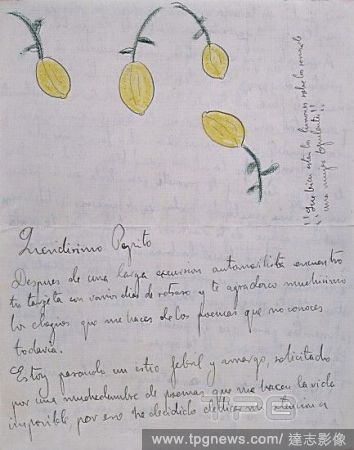 ¡¡Que bien están los limones sobre los
una mujer opulenta!!
Queridisimo Pepito
Despues de una larga excursion automovilista encuentro
tu tarjeta con varios dias de retraso y te agradezco muchisimo
los elogios que me haces de los poemas que no conoces
todavia.
Estoy pasando un estio febril y amargo, solicitado
por una muchedumbre de poemas que me hacen la vida
imposible, por eso he decidido
TPG
www.tpgnews.com/ 達志影像